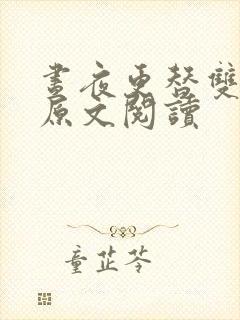 晝夜更替雙
原文閱讀
童芷苓